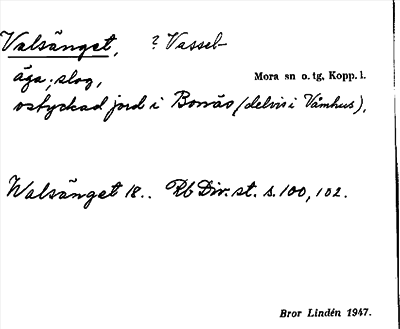 Valsänget, ? Vassel-
äga; slog, Mora sn o. tg, Kopp. l.
ostyckad jord i Bonäs (delvis i Våmhus),
Walsänget 18.. Rb Div. st. s. 100, 102.
Bror Lindén 1947.